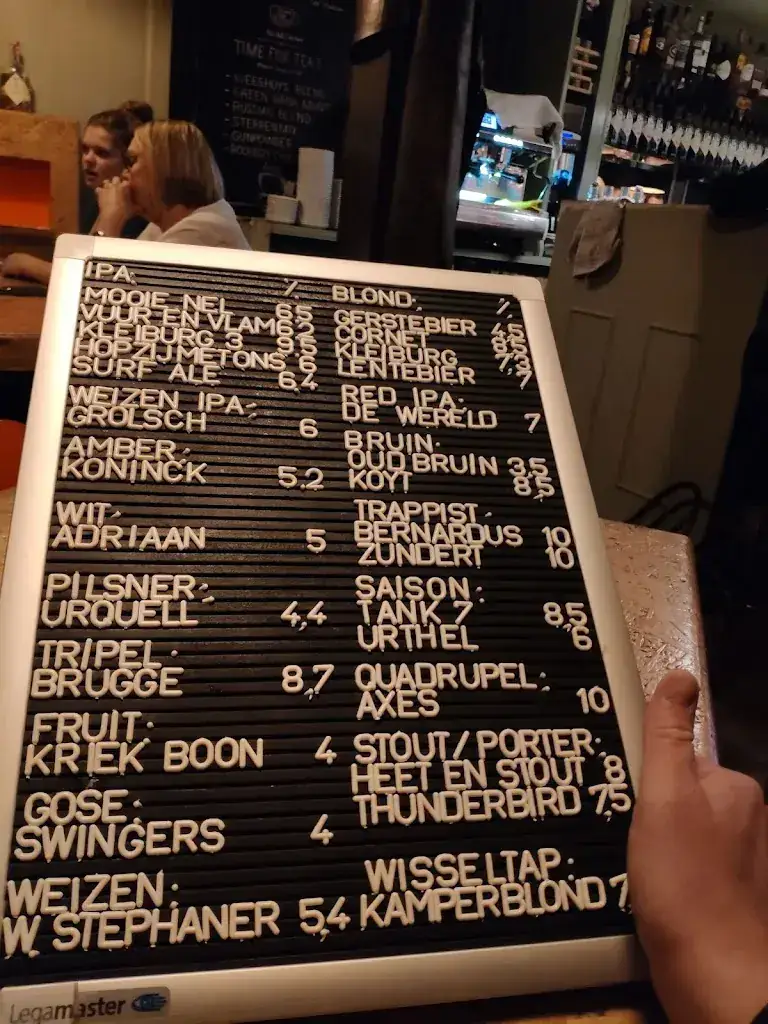 TIME FOR TEA?
IPA: %
MOOIE NEL 6,5
VUUR EN VLAM 6,2
KLEIBURG 3 9,5
HOPZIJMETONS 6
SURF ALE 6,4
WEIZEN IPA:
GROLSCH 6
AMBER:
KONINCK 5,2
WIT:
ADRIAAN 5
PILSNER:
URQUELL 4,4
TRIPEL:
BRUGGE 8,7
FRUIT:
KRIEK BOON 4
GOSE:
SWINGERS 4
WEIZEN:
W. STEPHANER 5,4
BLOND: %
GERSTEBIER 4,5
CORNET 8,5
KLEIBURG
LENTEBIER 7
RED IPA:
DE WERELD 7
BRUIN:
OUD BRUIN 3,5
KOYT 8,5
TRAPPIST:
BERNARDUS 10
ZUNDERT 10
SAISON:
TANK 7 8,5
URTHEL 6
QUADRUPEL:
AXES 10
STOUT/PORTER:
HEET EN STOUT 8
THUNDERBIRD 7,5
WISSELTAP:
KAMPERBLOND 7
Legamaster